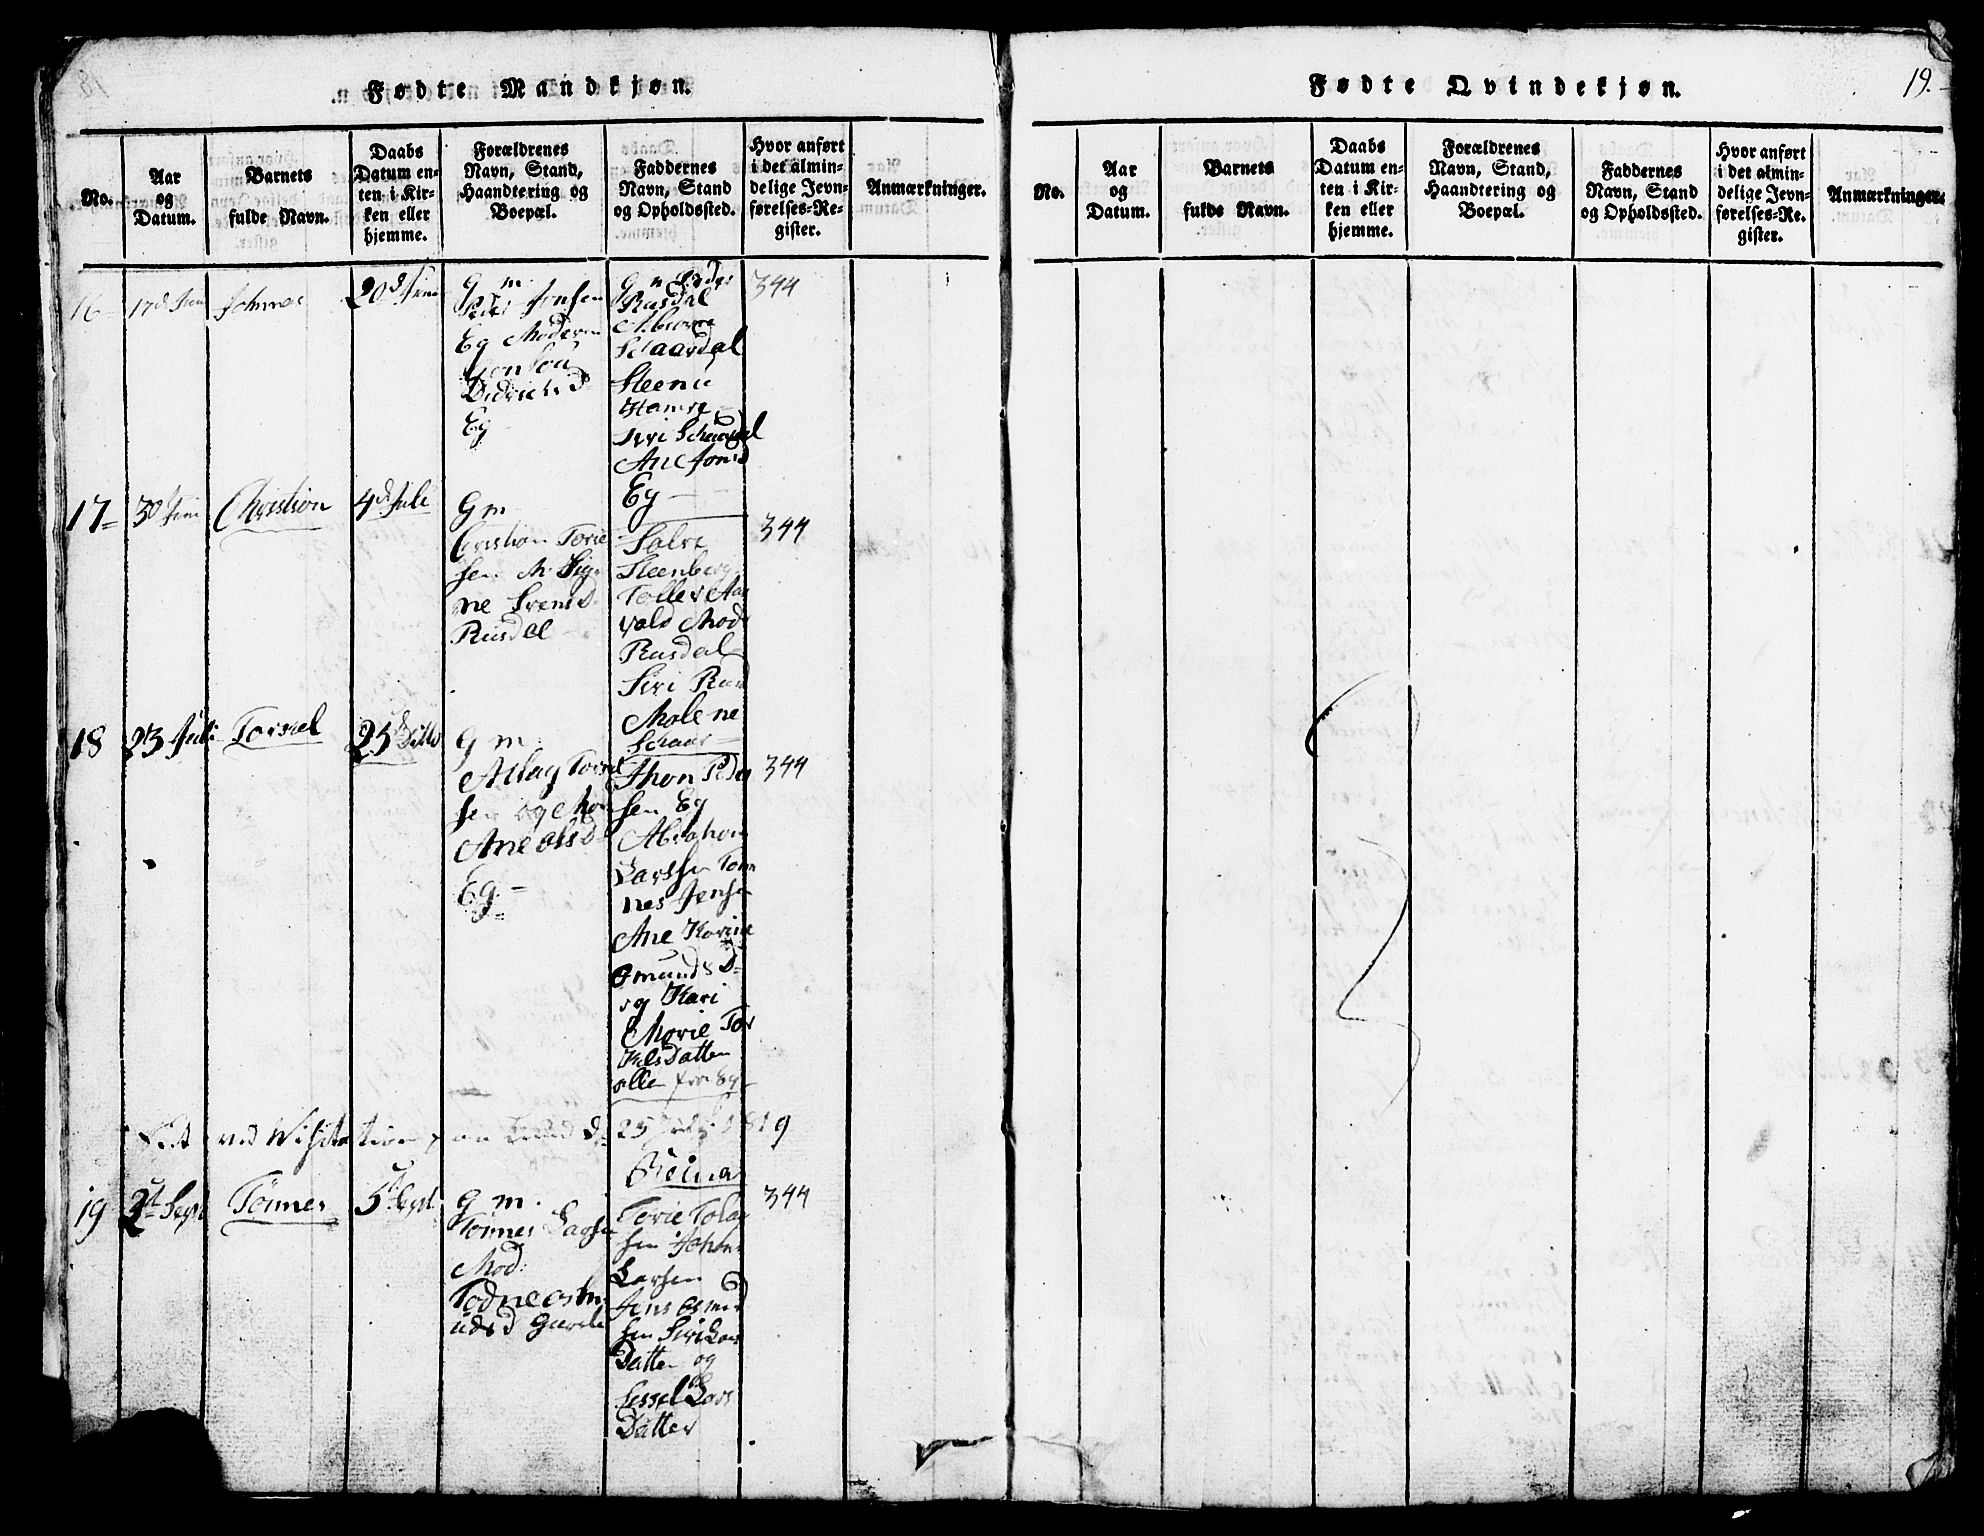 Fødte Mandkjøn.
No.
Aar
og
Datum.
Barnets
fulde Navn.
Daabs
Datum en-
ten i Kir-
ken eller
hjemme.
Forældrenes
Navn, Stand,
Haandtering og
Boepæl.
Faddernes
Navn, Stand
og Opholdssted.
Hvor anført
i det almin-
delige Jevn-
førelses-Re-
gister.
Anmærkninger.
16
17d Juni
20d Juni
G m.
Peder Jonsen
Eg Moderen
Didrichsd
Eg
Rusdal
Schaardal
Steene
Hamre
Siri Schaardal
Ane Jonsd
Eg
344
17
30 Juni
Christian
4d Juli
G m
Christian Torie
sen M. Sig-
ne Svensd
Rusdal
Salve
Steenberg
Toller Aar
vald Mods
Rusdal
Siri Rus
Malene
Schaar
344
18
23 Juli
Torkel
25d Ditto
G m.
Atlag Torkel
sen og Mor
Ane olsd
Eg.
Thon Peder
sen Eg
Abraham
Larssen Tøn
nes Jensen
Ane Karine
Omunds D
og Kari
Marie Tor
kelsDatter
alle fra Eg
344
Seet ved Visitation paa Lund d. 25 Juli 1819
19
2d Sept
Tønnes
5d Sept.
G m.
Tønnes Larsen
Mod:
Todne osm
udsd Gurse
Torie Tolag
sen John
Larsen
Jens Osmund
sen Siri Lars
Datter og
Sessel Lars
Datter
344
Fødte Qvindekjøn.
19.
No.
Aar
og
Datum.
Barnets
fulde Navn.
Daabs
Datum en-
ten i Kir-
ken eller
hjemme.
Forældrenes
Navn, Stand,
Haandtering og
Boepæl.
Faddernes
Navn, Stand
og Opholdssted.
Hvor anført
i det almin-
delige Jevn-
førelses-Re-
gister.
Anmærkninger.